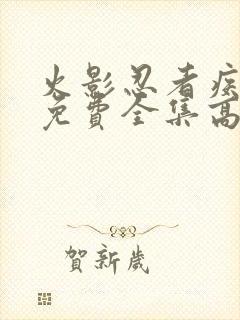 火影忍者疾
免費全集高
賀新歲